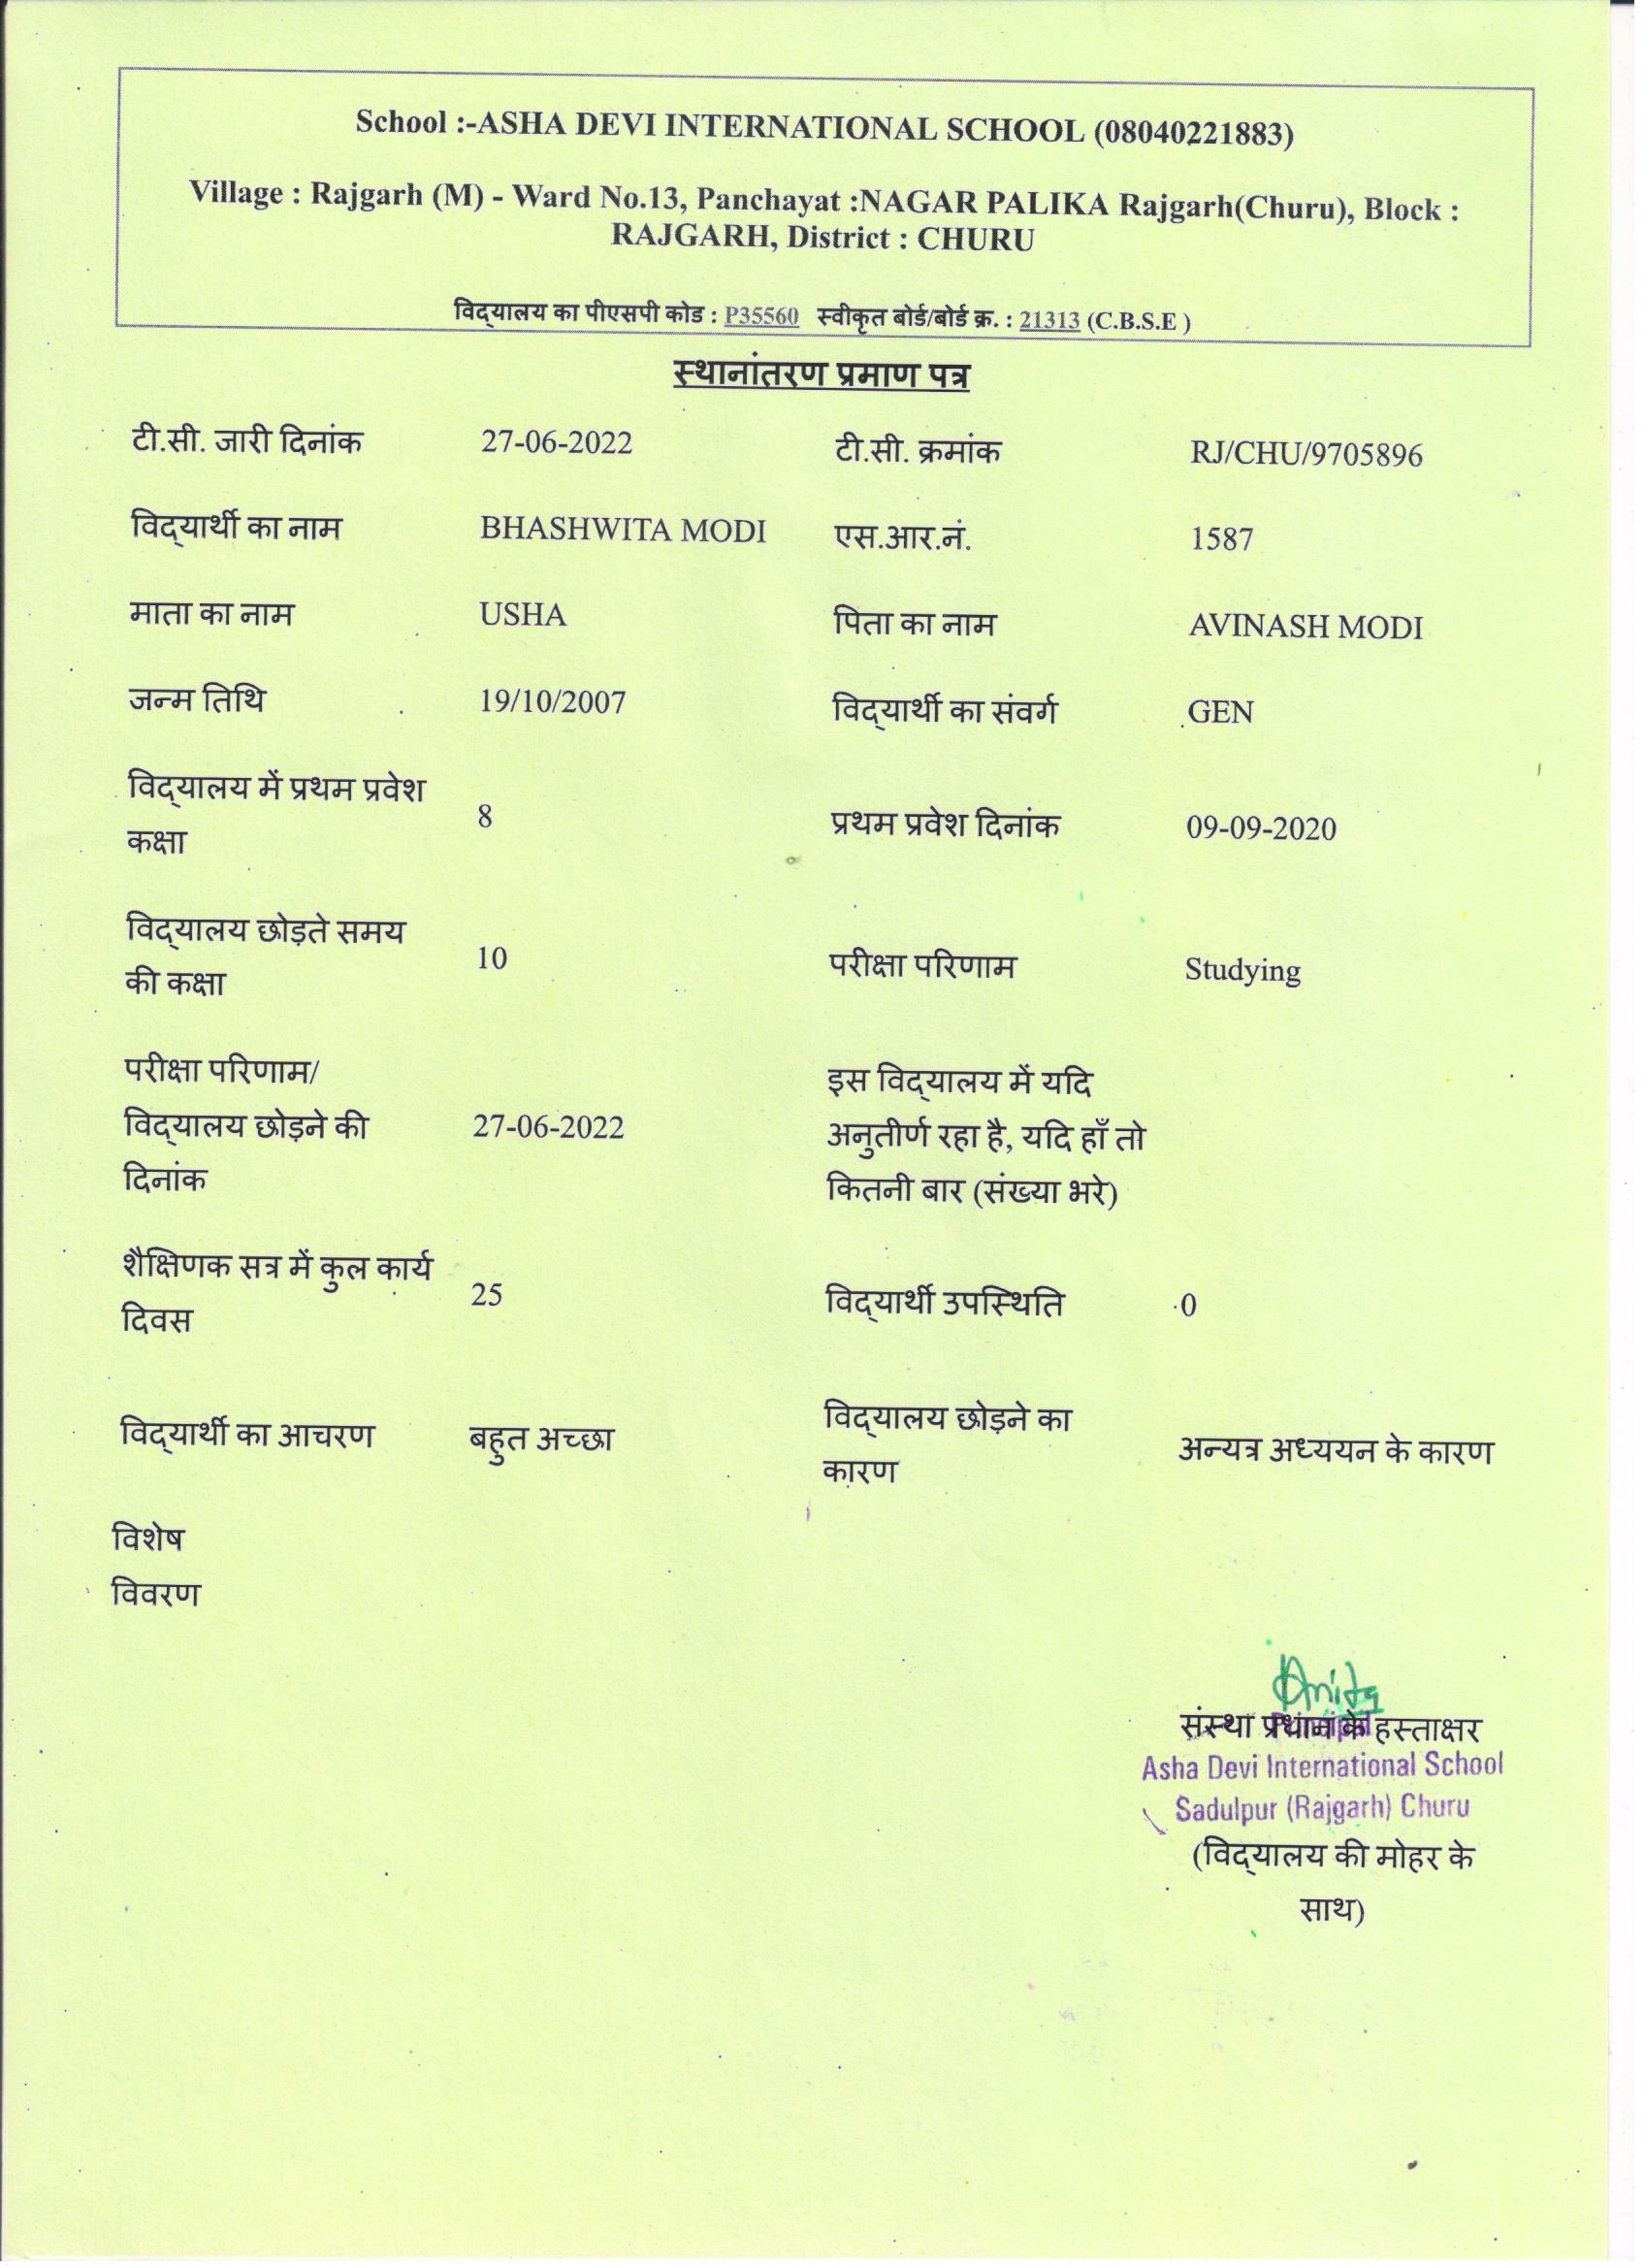 School :-ASHA DEVI INTERNATIONAL SCHOOL (08040221883)
Village : Rajgarh (M) - Ward No.13, Panchayat :NAGAR PALIKA Rajgarh(Churu), Block :
RAJGARH, District : CHURU
विद्यालय का पीएसपी कोड : P35560 स्वीकृत बोर्ड/बोर्ड क्र. : 21313 (C.B.S.E )
स्थानांतरण प्रमाण पत्र
टी.सी. जारी दिनांक 27-06-2022 टी.सी. क्रमांक RJ/CHU/9705896
विद्यार्थी का नाम BHASHWITA MODI एस.आर.नं. 1587
माता का नाम USHA पिता का नाम AVINASH MODI
जन्म तिथि 19/10/2007 विद्यार्थी का संवर्ग GEN
विद्यालय में प्रथम प्रवेश
कक्षा
8
प्रथम प्रवेश दिनांक 09-09-2020
विद्यालय छोड़ते समय
की कक्षा
10
परीक्षा परिणाम Studying
परीक्षा परिणाम/
विद्यालय छोड़ने की
दिनांक
27-06-2022
इस विद्यालय में यदि
अनुतीर्ण रहा है, यदि हाँ तो
कितनी बार (संख्या भरे)
शैक्षिणक सत्र में कुल कार्य
दिवस
25
विद्यार्थी उपस्थिति 0
विद्यार्थी का आचरण बहुत अच्छा
विद्यालय छोड़ने का
कारण
अन्यत्र अध्ययन के कारण
विशेष
विवरण
Anita
Principal
संस्था प्रधान के हस्ताक्षर
Asha Devi International School
Sadulpur (Rajgarh) Churu
(विद्यालय की मोहर के
साथ)